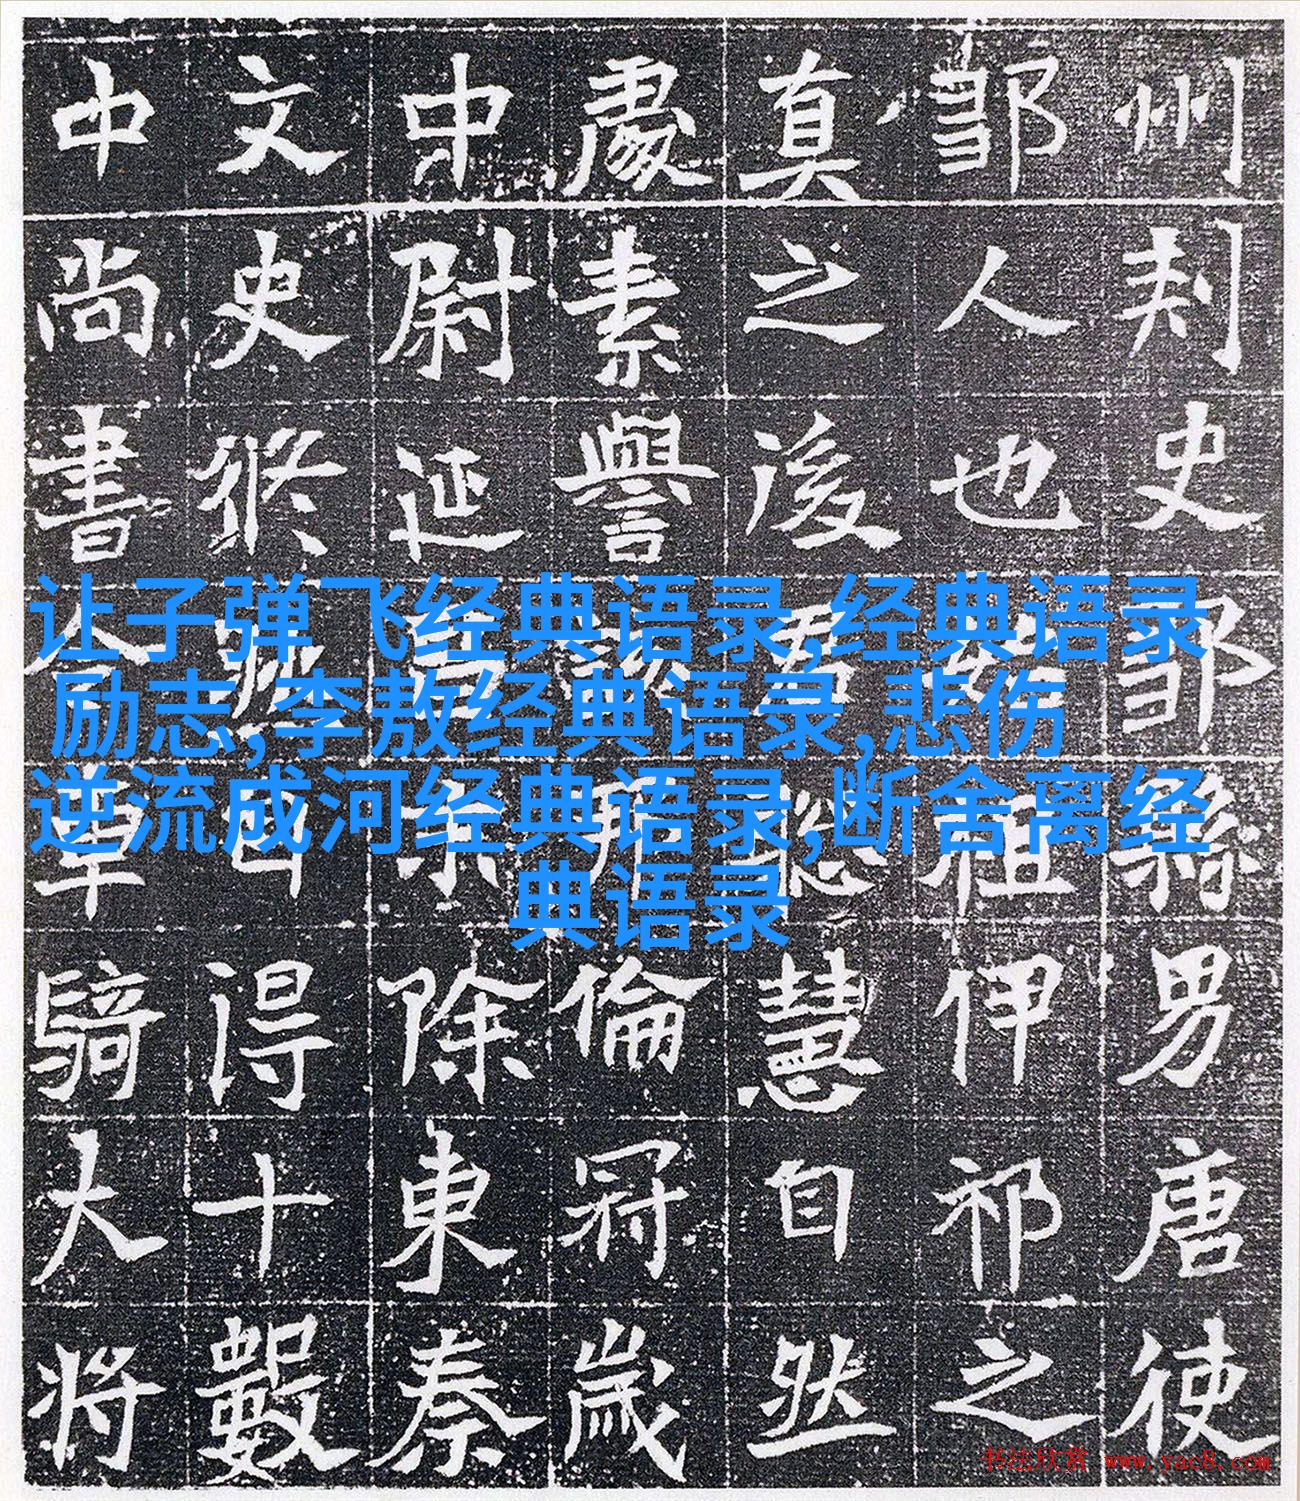 州刾史鄒縣男唐使
鄒人也祖伊祁之
真之後君聡慧自然
處素譽倫冠歲
中尉延昌除東秦
文史得十數
中尚書令車騎大將
让子弹飞经典语录,经典语录
励志,李敖经典语录,悲伤
逆流成河经典语录,断舍离经
典语录
书法欣赏 www.yac8.com